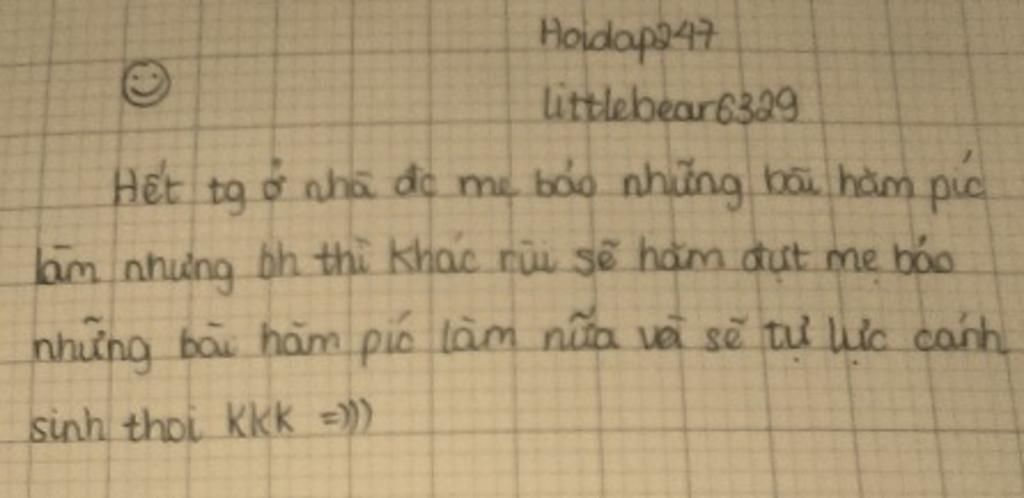 Hoidap247
littlebear6329
Hết tg ở nhà đc mẹ bảo những bài hăm pić
làm nhưng bh thì khác rùi sẽ hăm đựt mẹ bảo
những bài hăm pić làm nữa và sẽ tự lực cánh
sinh thoi KKK =)))